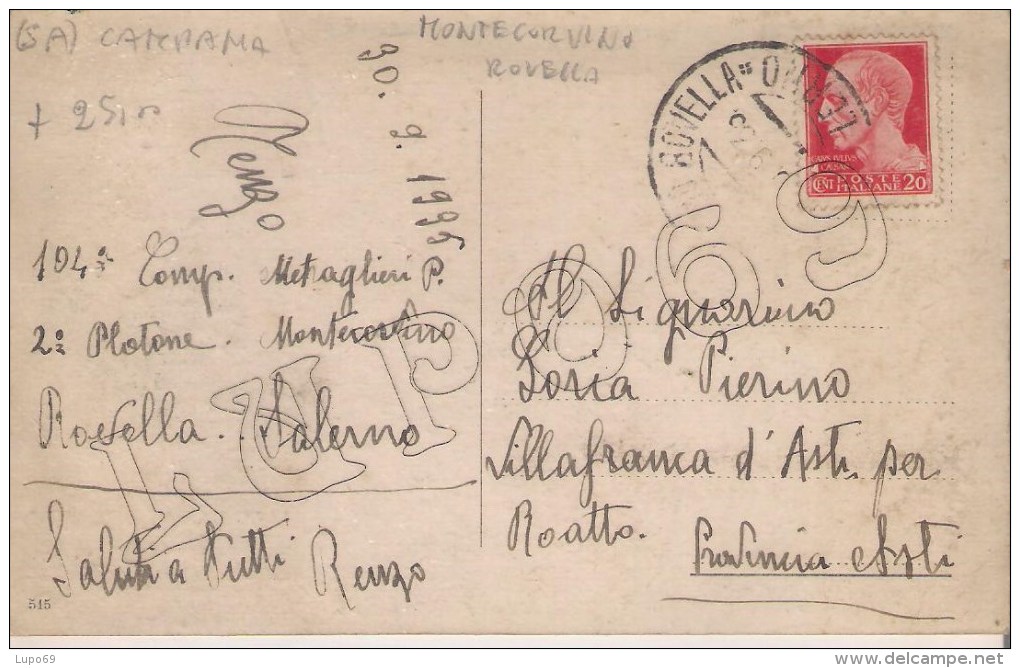 (SA) CAMPANIA
MONTECORVINO
ROVELLA
+ 25
30. 9. 1935
Renzo
ROVELLA
CAIUS IVLIVS
CAESAR
CENT POSTE
ITALIANE 20
104ª Comp. Mitraglieri P.
2º Plotone. Montecorvino
Rovella. Salerno
Saluti a tutti Renzo
515
Al Signorino
Pierino
Villafranca d'Asti per
Roatto.
Provincia Asti
LUPO69
Lupo69
http://www.delcampe.net